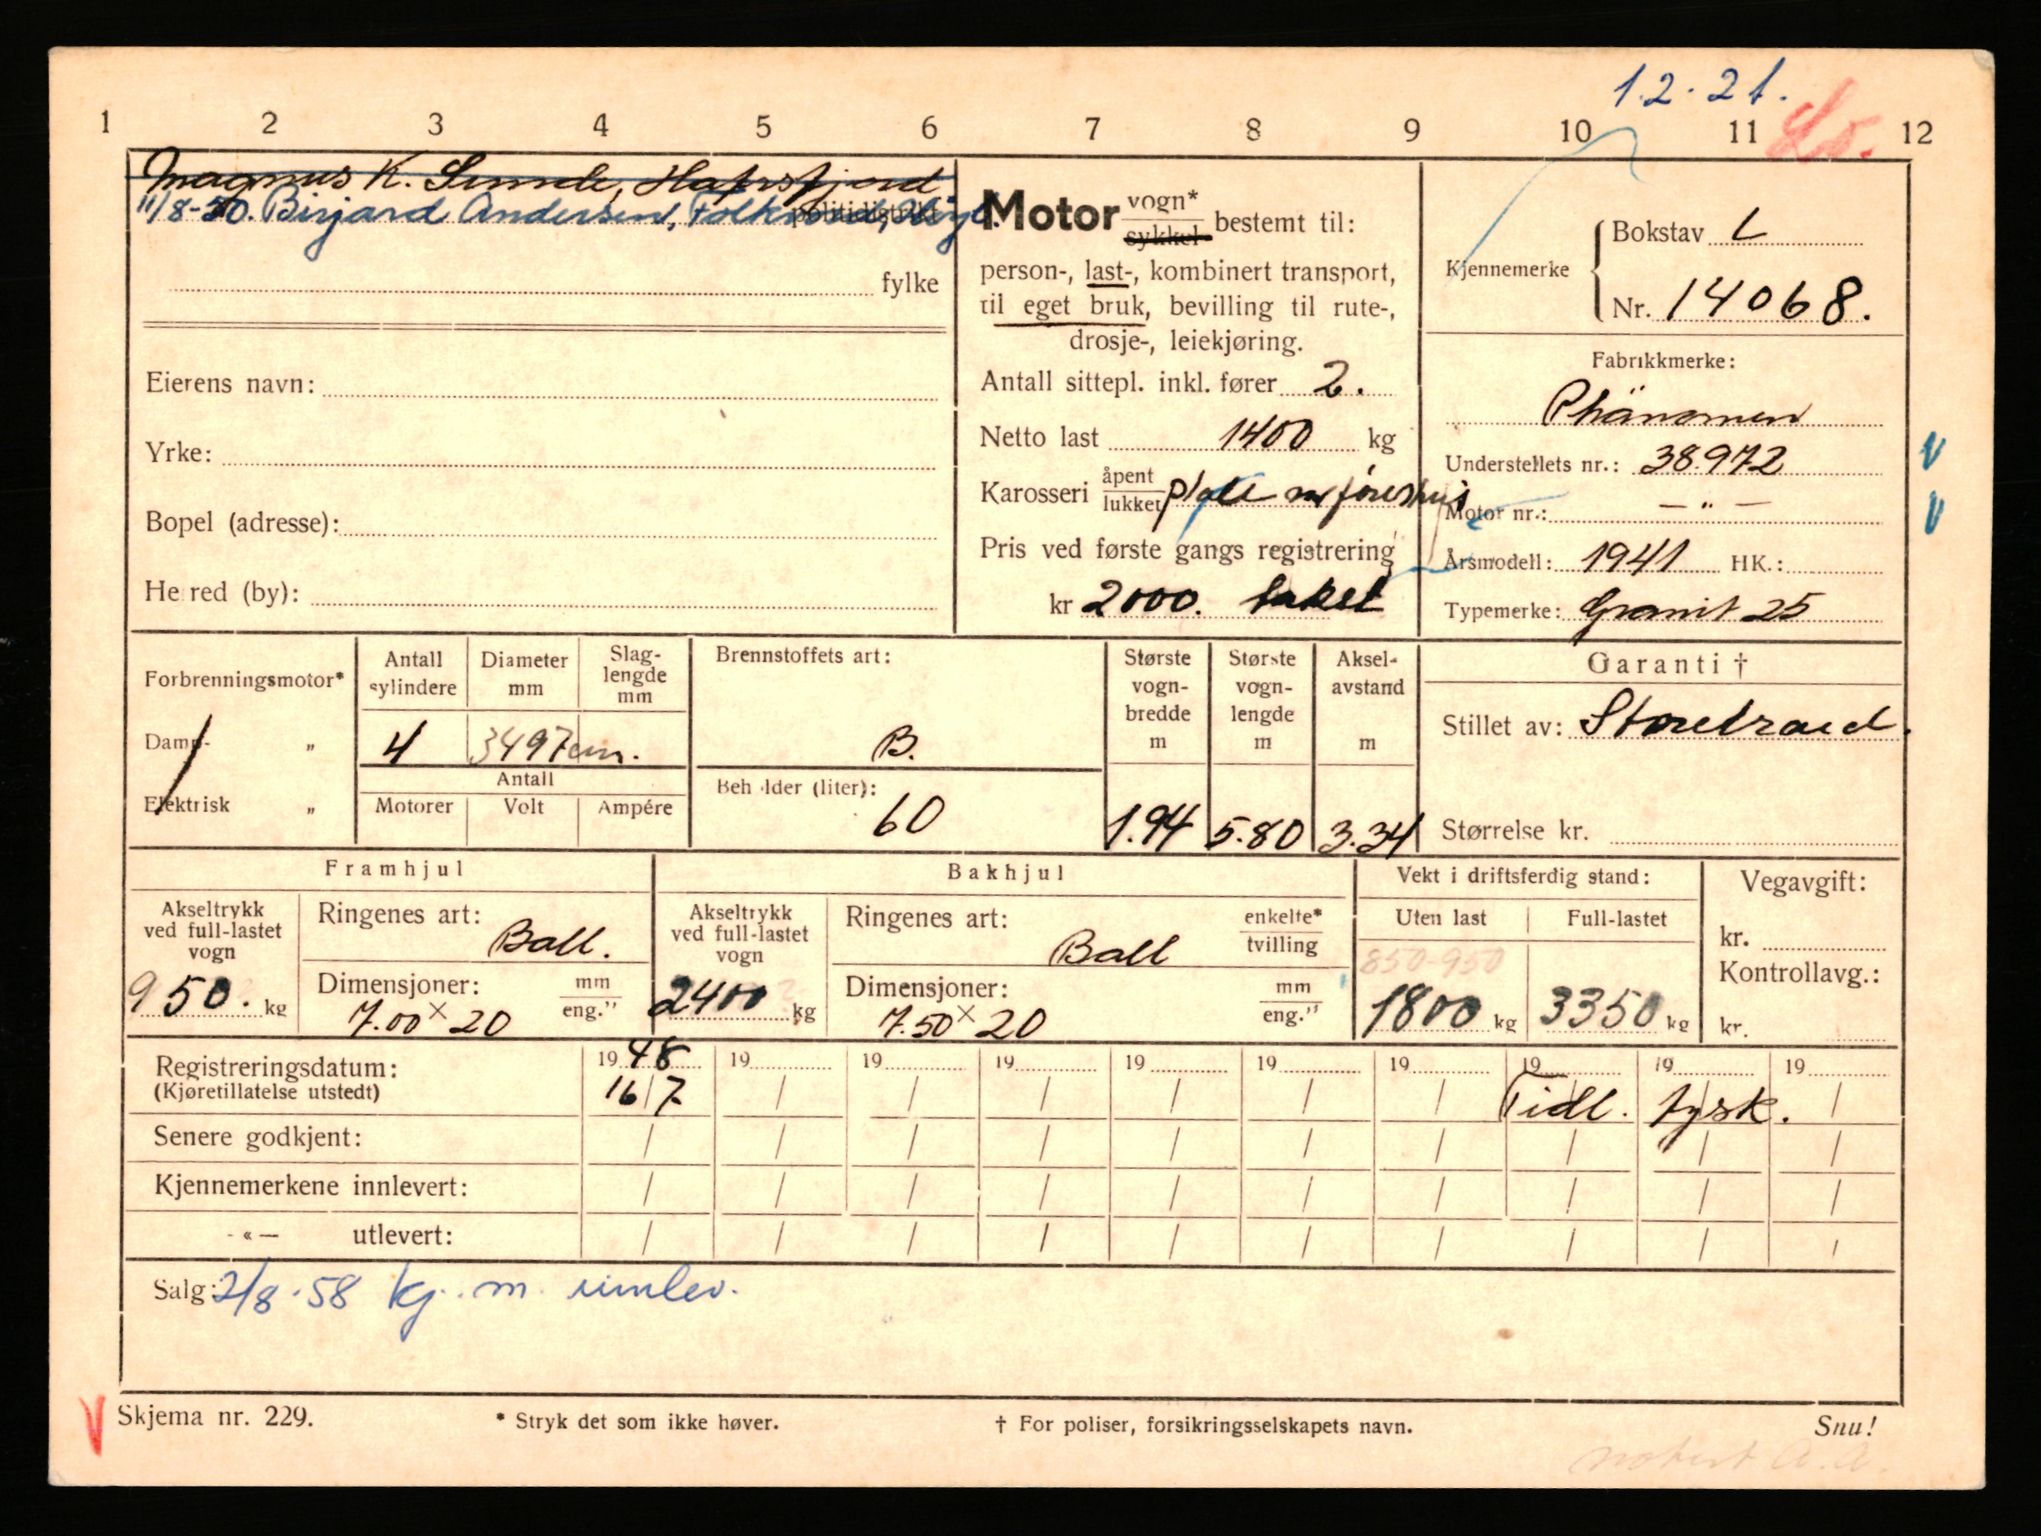 1.2.21.
1 2 3 4 5 6 7 8 9 10 11 12
Magnus K. Sunde, Hafrsfjord
11/8-50. Birjard Andersen,
politidistrikt
fylke
Eierens navn:
Yrke:
Bopel (adresse):
Herred (by):
Motor vogn* sykkel bestemt til:
person-, last-, kombinert transport,
til eget bruk, bevilling til rute-,
drosje-, leiekjøring.
Antall sittepl. inkl. fører 2.
Netto last 1400 kg
Karosseri åpent lukket plan m/førerhus
Pris ved første gangs registrering
kr 2000. takst
Kjennemerke
Bokstav L
Nr. 14068.
Fabrikkmerke:
Phänomen
Understellets nr.: 38972
Motor nr.: — " —
Årsmodell: 1941 HK.:
Typemerke: Granit 25
Forbrenningsmotor*
Damp- „
Elektrisk „
Antall sylindere
Diameter mm
Slag-lengde mm
4 3497 cm.
Antall
Motorer Volt Ampére
Brennstoffets art:
B.
Beholder (liter):
60
Største vogn-bredde m
1.94
Største vogn-lengde m
5.80
Aksel-avstand m
3.34
Garanti †
Stillet av: Storebrand.
Størrelse kr.
Framhjul
Akseltrykk ved full-lastet vogn
950. kg
Ringenes art: Ball.
Dimensjoner: mm eng."
7.00 x 20
Bakhjul
Akseltrykk ved full-lastet vogn
2400 kg
Ringenes art: enkelte* tvilling
Ball
Dimensjoner: mm eng."
7.50 x 20
Vekt i driftsferdig stand:
Uten last Full-lastet
850-950
1800 kg 3350 kg
Vegavgift:
kr.
Kontrollavg.:
kr.
Registreringsdatum: 1948 19 19 19 19 19 19 19 19 19
(Kjøretillatelse utstedt) 16/7 / / / / / / Tidl. tysk. /
Senere godkjent: / / / / / / / / / /
Kjennemerkene innlevert: / / / / / / / / / /
- « — utlevert: / / / / / / / / / /
Salg: 2/8-58 kj. m. innlev.
Skjema nr. 229.
* Stryk det som ikke høver.
† For poliser, forsikringsselskapets navn.
Snu!